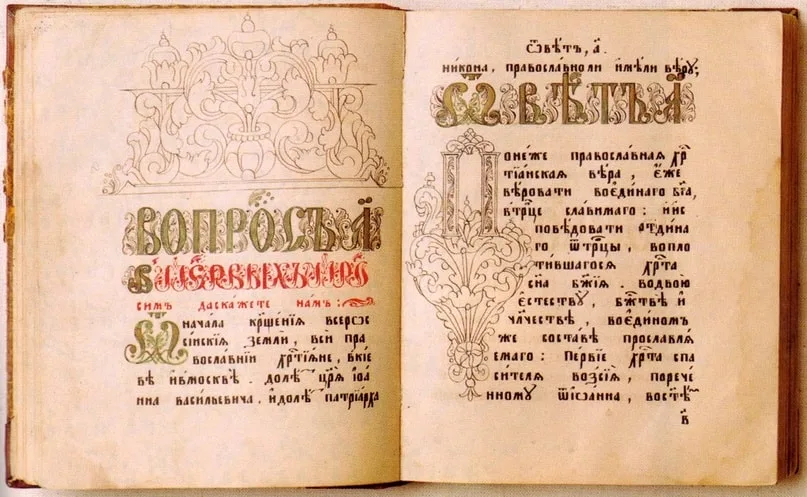 ВОПРО́СЪ А҃
ВПЕ́РВЫХЪ ПРО
симъ даскажете намъ:
Ѿ начала крщ҃енїѧ всеросс
сїискїѧ земли, вси пра
вославнїи хрⷭ҇тїѧне, вкїе
вѣ ивмосквѣ. долѣ цр҃ѧ їѡа
нна васильевича. идолѣ патрїарха
Ѿвѣтъ, а҃.
никона, православноли имѣли вѣру;
ѾВѢ́ТЪ А҃
Понеже православнаѧ хрⷭ҇
тїанскаѧ вѣра, еже
вѣровати воединаго бг҃а,
втрⷪ҇це славимаго: иис
повѣдовати едина
го ѿтрⷪ҇цы, вопло
тившагосѧ хрⷭ҇та
сн҃а бж҃їѧ. водвою
естеству, бжⷭ҇твѣ и
чл҃чествѣ, воединомъ
же составѣ прославлѧ
емаго: Первїе хрⷭ҇та спа
сителѧ возсїѧ, порече
нному, востѣ
в҃